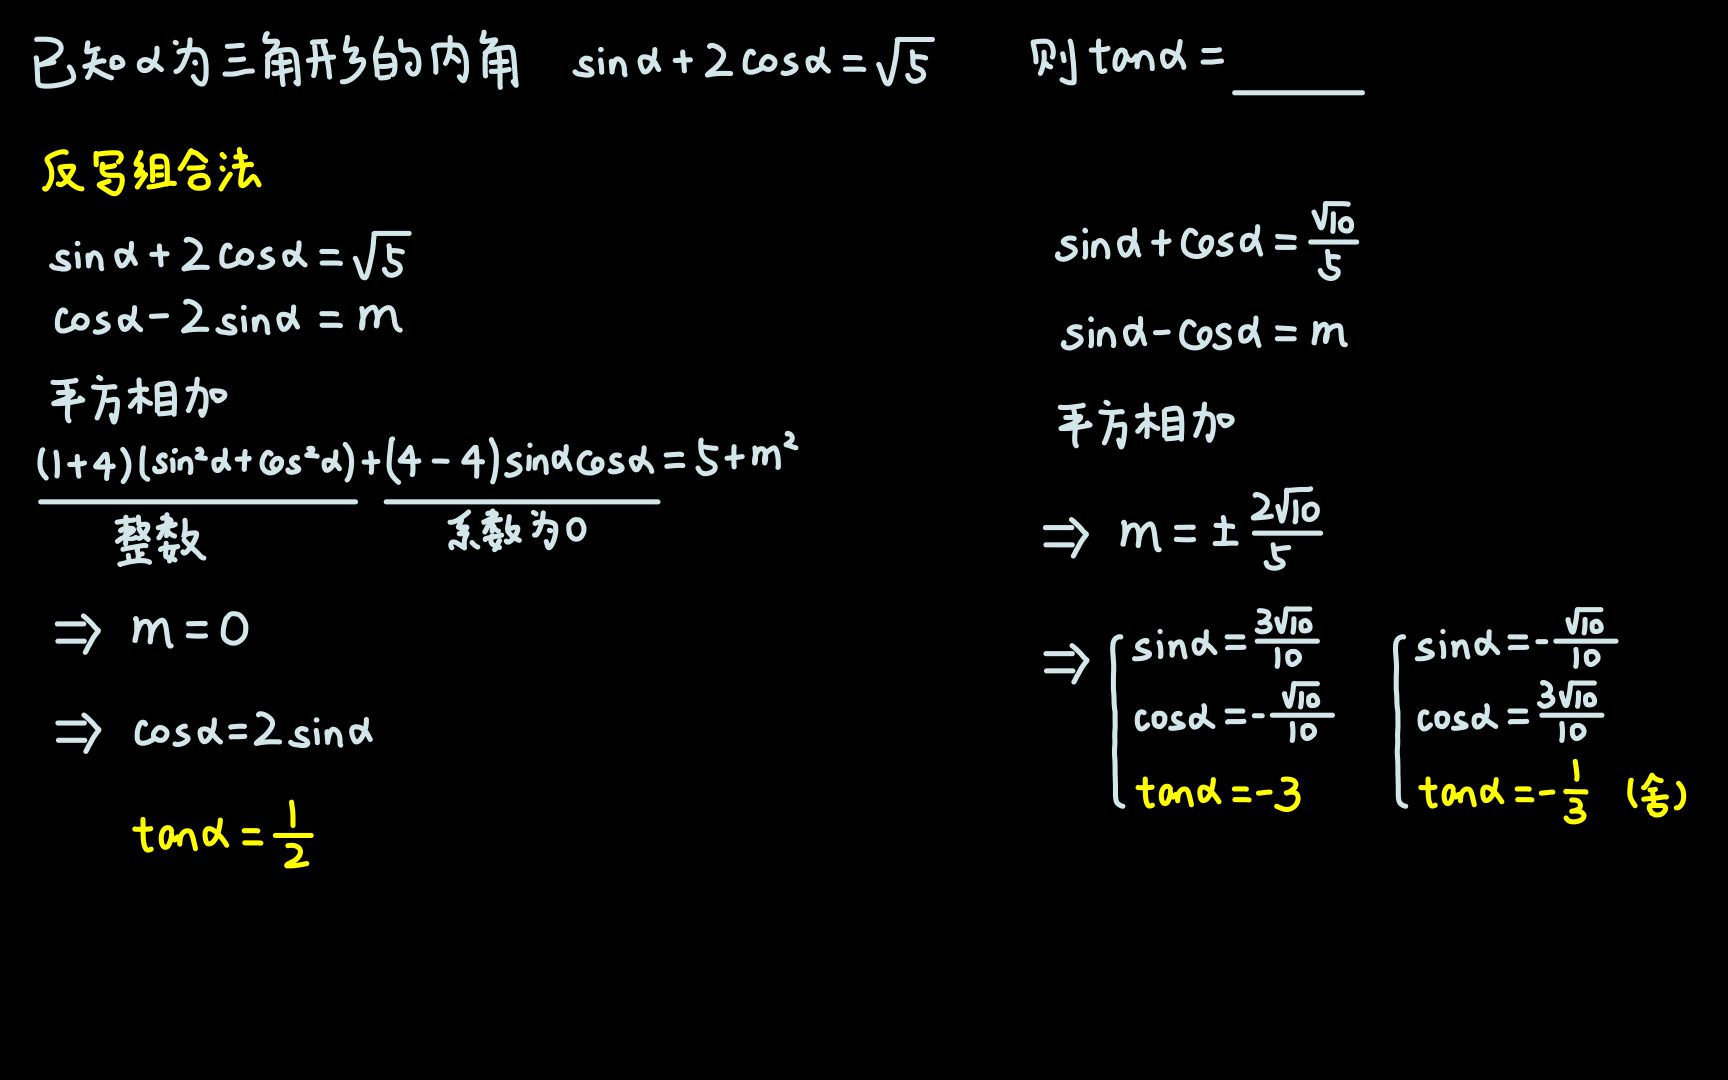 已知α为三角形的内角 sinα+2cosα=√5 则tanα=____
反写组合法
sinα+2cosα=√5
cosα-2sinα=m
平方相加
(1+4)(sin²α+cos²α)+(4-4)sinαcosα=5+m²
整数 系数为0
⇒ m=0
⇒ cosα=2sinα
tanα=1/2
sinα+cosα=√10/5
sinα-cosα=m
平方相加
⇒ m=±2√10/5
⇒ { sinα=3√10/10 { sinα=-√10/10
cosα=-√10/10 cosα=3√10/10
tanα=-3 tanα=-1/3 (舍)